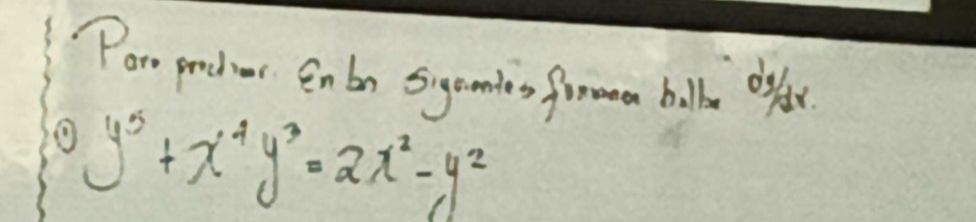 Para practicar. En las siguientes funciones halla dy/dx.
① y⁵ + x⁴y³ = 2x² - y²